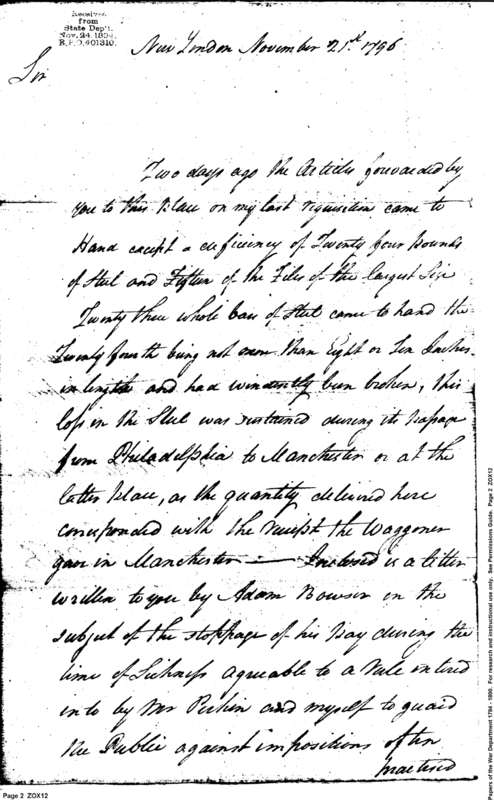 Received
from
State Dep't.
Nov. 24, 1894.
R.P.O. 401310.
New London November 21st 1796
Sir
Two days ago the Articles forwarded by
you to this Place on my last requisition came to
Hand except a deficiency of Twenty four Pounds
of Steel and Fifteen of the Files of the largest Size
Twenty three whole bars of Steel came to hand the
Twenty fourth being not more than Eight or Ten Inches
in length and had evidently been broken, this
loss in the Steel was sustained during its Passage
from Philadelphia to Manchester or at the
latter Place, as the quantity delivered here
corresponded with the receipt the Waggoner
gave in Manchester — Inclosed is a letter
written to you by Adam Bowser on the
subject of the stoppage of his Pay during the
time of Sickness agreable to a Rule entered
into by Mr Perkin and myself to guard
the Public against impositions often
practised
Page 2 ZOX12
Papers of the War Department 1784 - 1800. For research and instructional use only. See Permissions Guide. Page 2 ZOX12